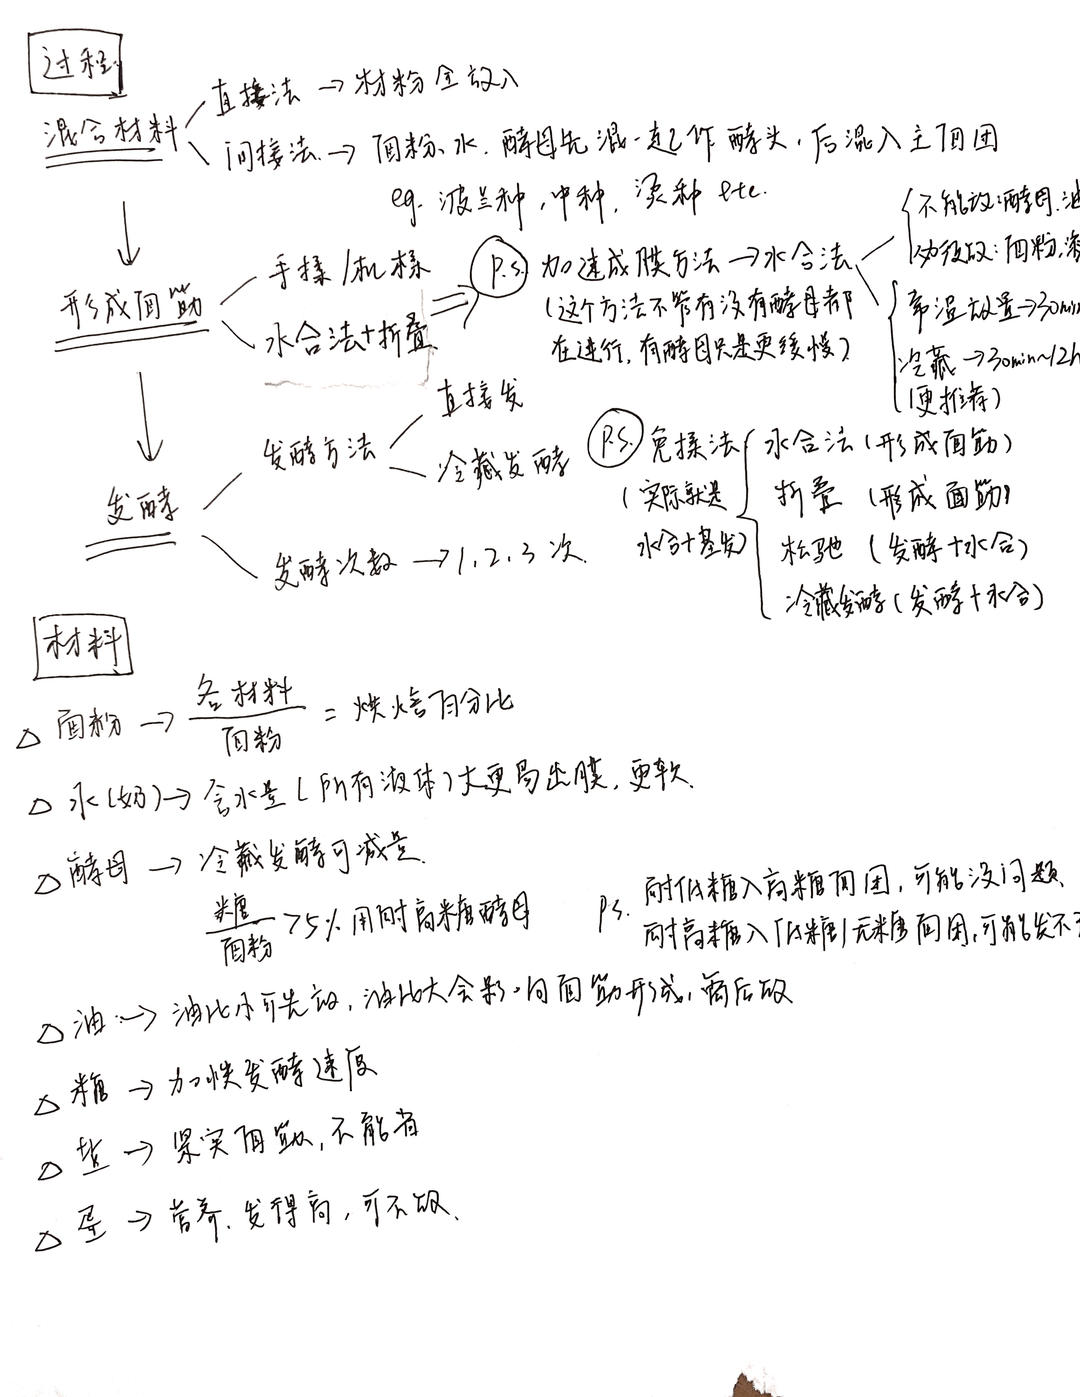 过程
混合材料
直接法 → 材粉全放入
间接法 → 面粉、水、酵母先混一起作酵头，后混入主面团
eg. 波兰种，中种，烫种 etc.
形成面筋
手揉/机揉
水合法+折叠
P.S. 加速成膜方法 → 水合法
(这个方法不管有没有酵母都
在进行，有酵母只是更缓慢)
不能放：酵母、油
必须放：面粉、液
常温放置→30min
冷藏→30min~12h
(更推荐)
发酵
发酵方法
直接发
冷藏发酵
发酵次数 → 1、2、3 次
P.S. 免揉法
(实际就是
水合+基发)
水合法 (形成面筋)
折叠 (形成面筋)
松驰 (发酵+水合)
冷藏发酵 (发酵+水合)
材料
△ 面粉 → 各材料/面粉 = 烘焙百分比
△ 水(奶) → 含水量(所有液体)大更易出膜，更软
△ 酵母 → 冷藏发酵可减量
糖/面粉 >5% 用耐高糖酵母
P.S. 耐低糖入高糖面团，可能没问题
耐高糖入低糖/无糖面团，可能发不
△ 油 → 油比小可先放，油比大会影响面筋形成，需后放
△ 糖 → 加快发酵速度
△ 盐 → 紧实面筋，不能省
△ 蛋 → 营养、发得高，可不放、